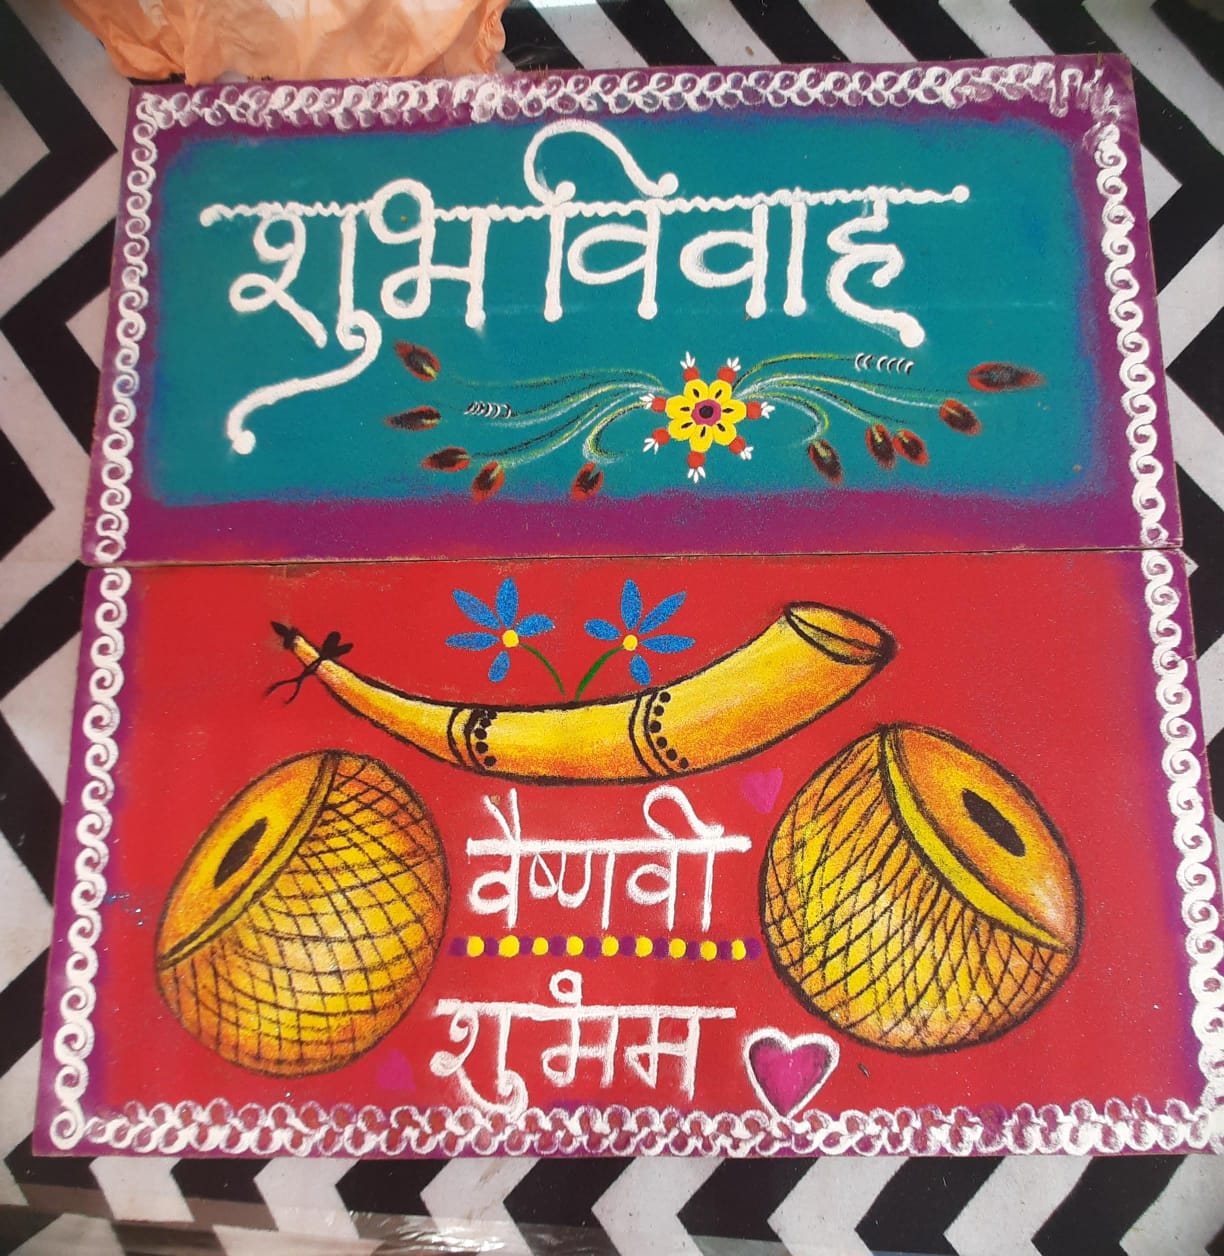 शुभ विवाह
वैष्णवी
शुभम